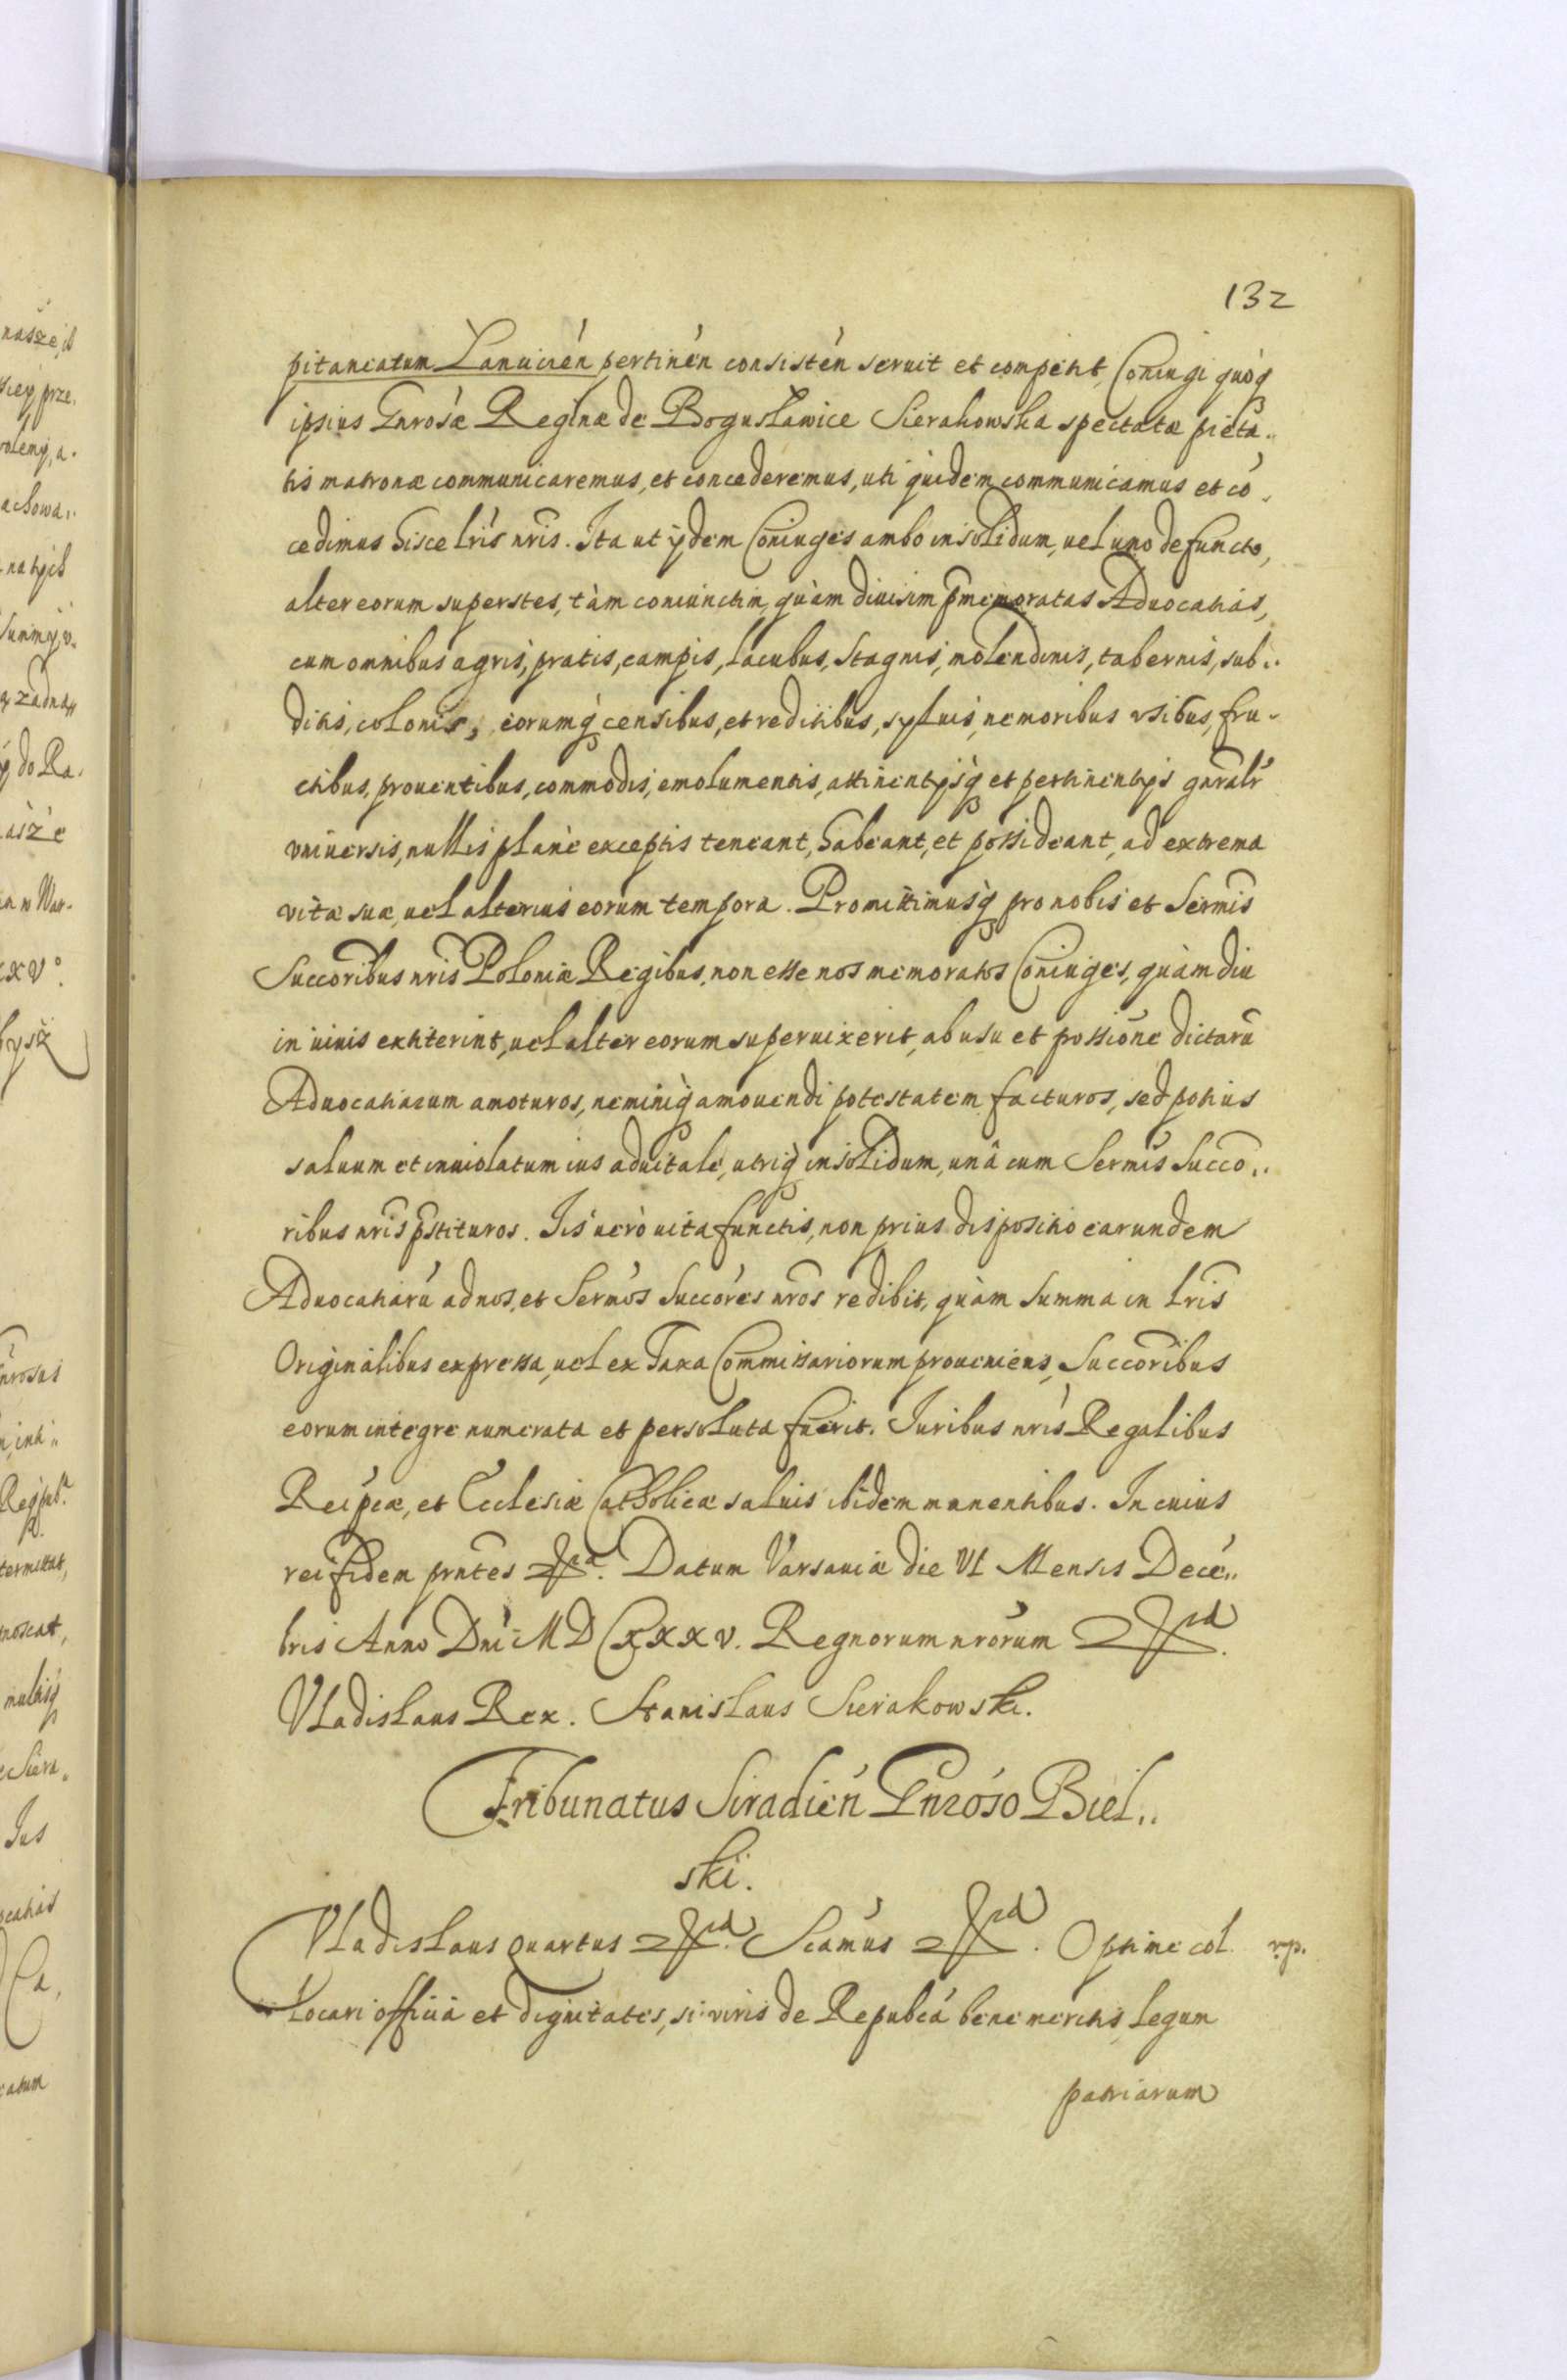 132
pitaneatum Lanuicień pertineń consisteń seruit et competit, Coniugi quoq
ipsius Gnrosæ Reginæ de Bogusławice Sierakowska spectatæ pieta..
tis matronæ communicaremus, et concederemus, uti quidem communicamus et cō.
cedimus hisce lris nris. Ita ut ijdem Coniuges ambo in solidum, uel uno defuncto,
alter eorum superstes, tàm coniunctim, quàm diuisim pmemoratas Aduocatias,
cum omnibus agris, pratis, campis, lacubus, stagnis, molendinis, tabernis, sub..
ditis, colonis, eorumq censibus, et reditibus, syluis, nemoribus vsibus, fru-
ctibus, prouentibus, commodis, emolumentis, attinentijsq et pertinentijs gnralr
vniuersis, nullis planè exceptis teneant, habeant, et possideant, ad extrema
vitæ suæ, uel alterius eorum tempora. Promittimusq pro nobis et Sermis
Succoribus nris Poloniæ Regibus, non esse nos memoratos Coniuges, quàm diu
in uiuis extiterint, uel alter eorum superuixerit, ab usu et possione dictarū
Aduocatiarum amoturos, neminiq amouendi potestatem facturos, sed potius
saluum et inuiolatum ius aduitale, utriq in solidum, unâ cum Sermis Succo..
ribus nris pstituros. Iis uerò uita functis, non prius dispositio earundem
Aduocatiarū ad nos, et Sermos Succores nros redibit, quàm summa in lris
Originalibus expressa, uel ex Taxa Commissariorum proueniens, Succoribus
eorum integre numerata et persoluta fuerit. Iuribus nris Regalibus
Reipcæ, et Ecclesiæ Catholicæ saluis ibidem manentibus. In cuius
rei fidem pntes etc. Datum Varsauiæ die VI Mensis Decē..
bris Anno Dni MDCXXXV. Regnorum nrorum etc.
Vladislaus Rex. Stanislaus Sierakowski.
Tribunatus Siradień Gnroso Biel..
ski.
Vladislaus Quartus etc. Scamus etc. Optime col
locari officia et dignitates, si viris de Republca bene meritis, legum
patriarum